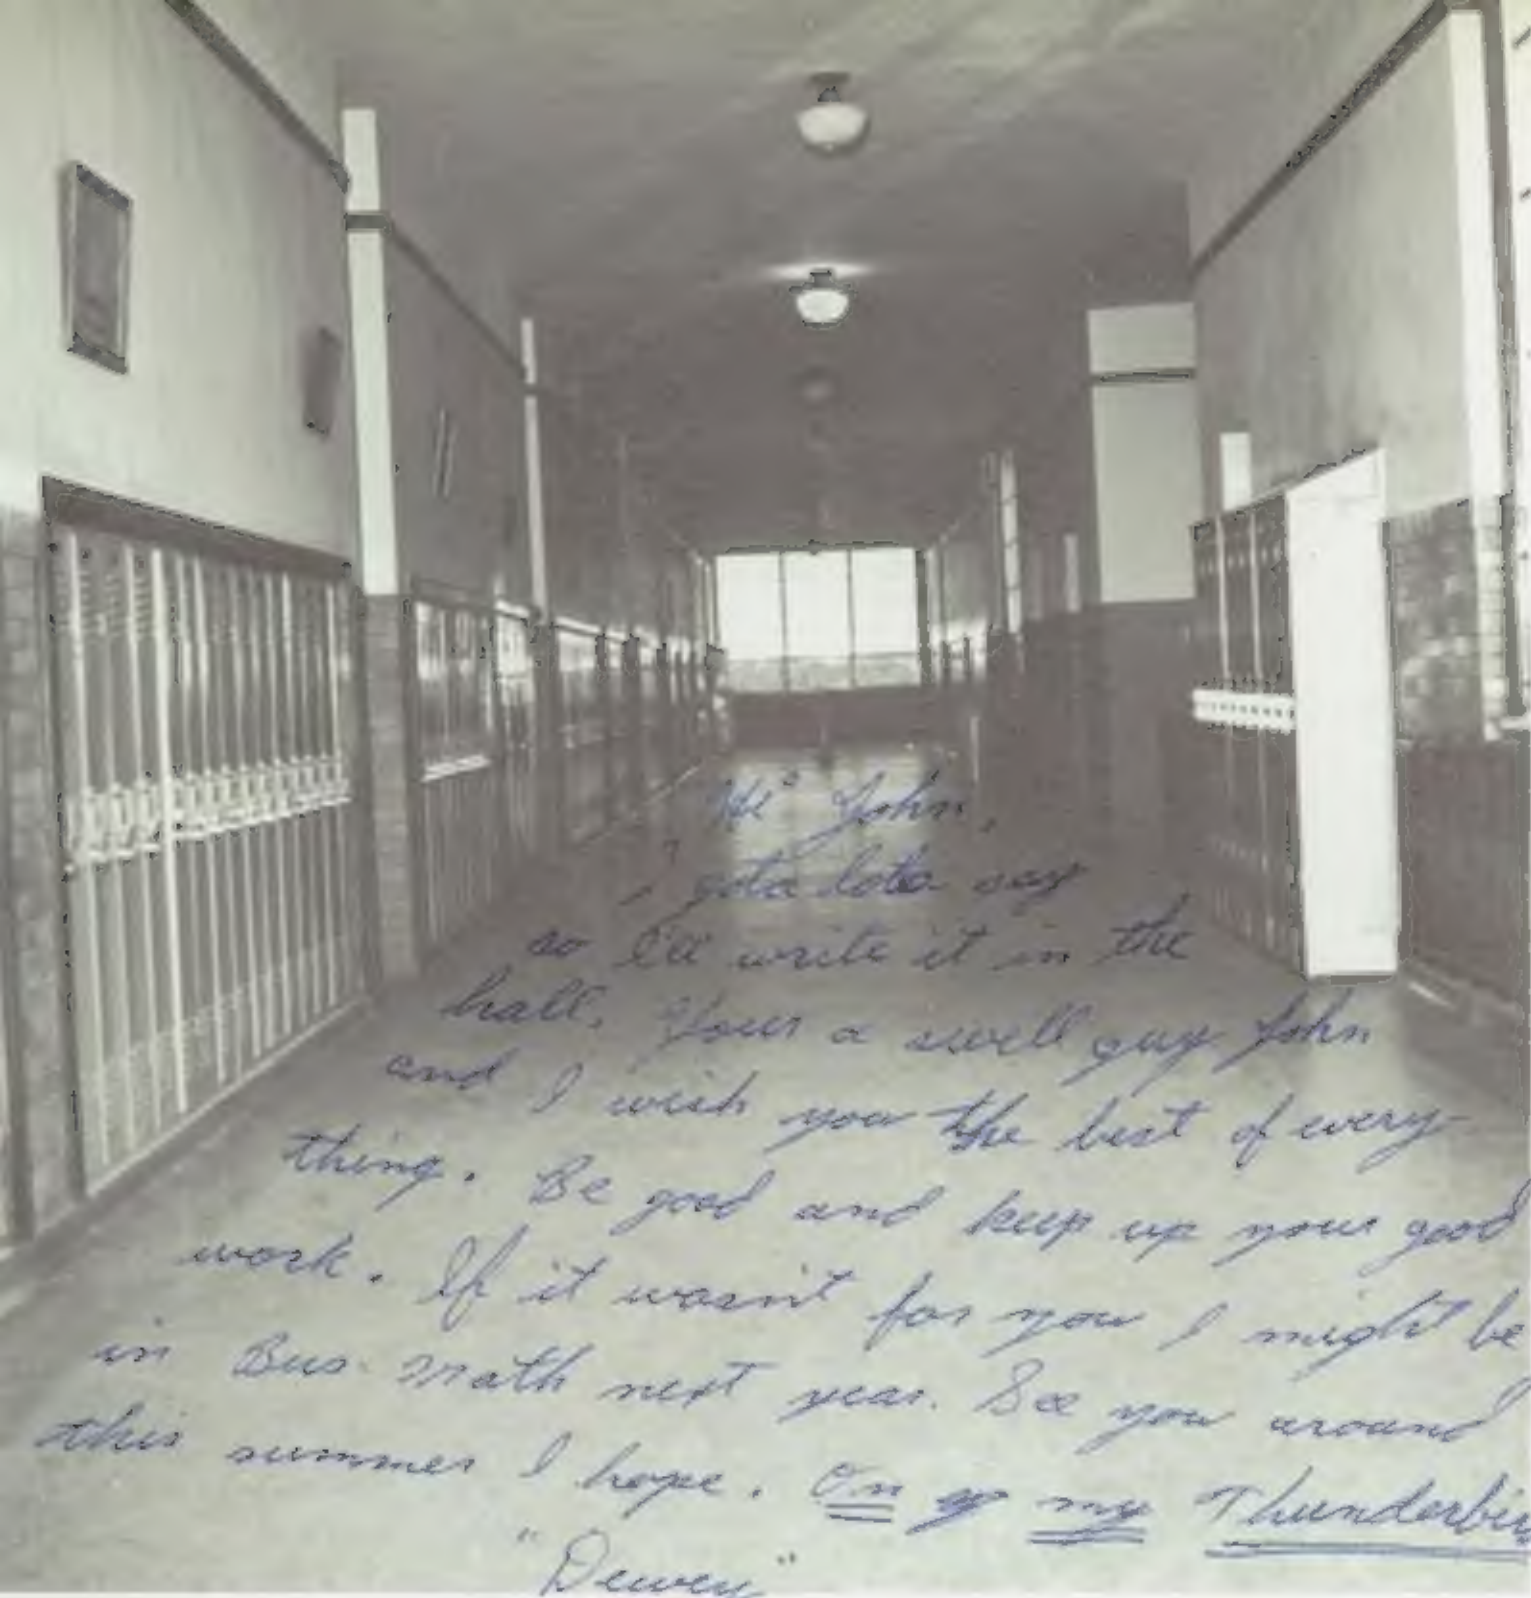 "Hi" John,
I gota lota say
so I'll write it in the
hall. Your a swell guy John
and I wish you the best of every-
thing. Be good and keep up your good
work. If it wasn't for you I might be
in Bus. Math next year. See you around
this summer I hope. On my Thunderbir
"Dewey"